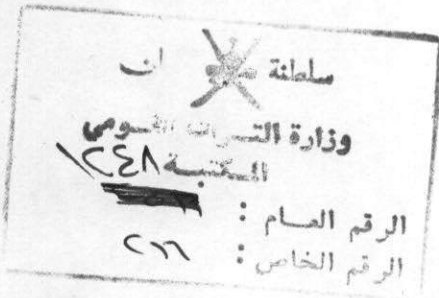 سلطنة عمان
وزارة التراث القومي
المكتبة ١٢٤٨
الرقم العام :
الرقم الخاص : ٢٦٦